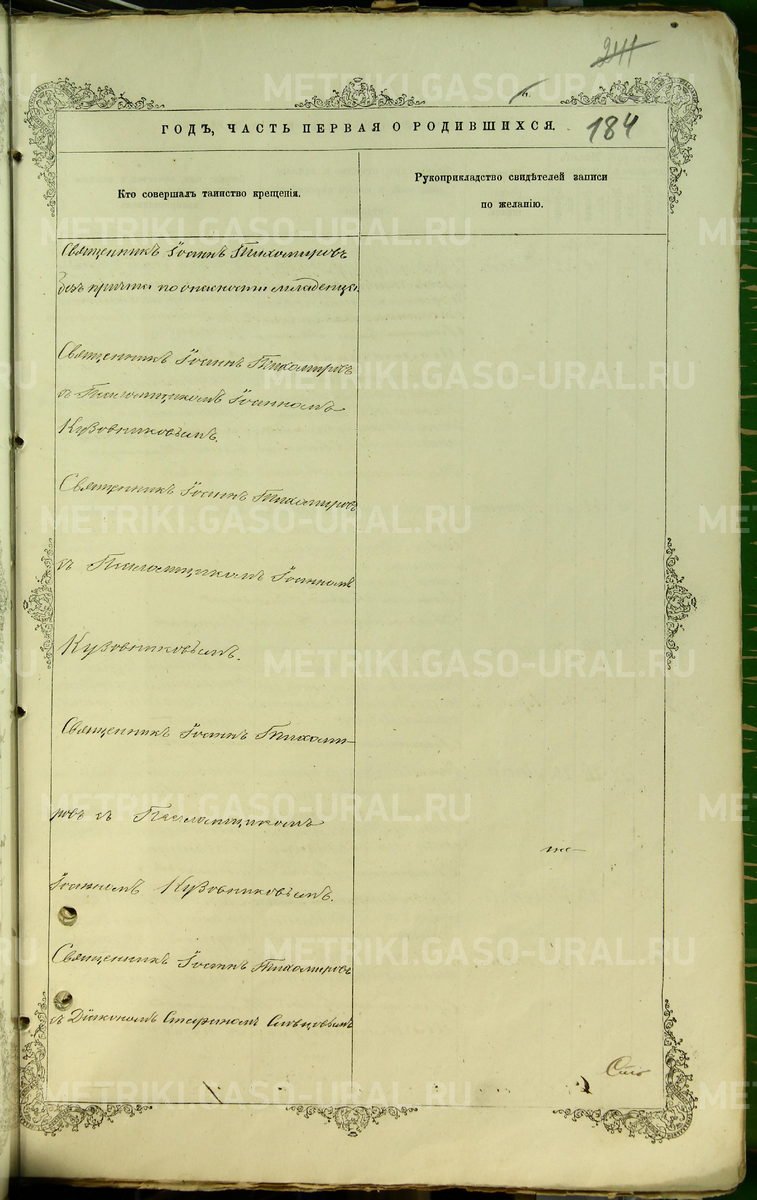 241
184
ГОДЪ, ЧАСТЬ ПЕРВАЯ О РОДИВШИХСЯ.
Кто совершалъ таинство крещенія.
Рукоприкладство свидѣтелей записи
по желанію.
Священникъ Іоаннъ Тихомировъ
безъ причта по опасности младенца.
Священникъ Іоаннъ Тихомировъ
съ Псаломщикомъ Іоанномъ
Кузовниковымъ.
Священникъ Іоаннъ Тихомировъ
съ Псаломщикомъ Іоанномъ
Кузовниковымъ.
Священникъ Іоаннъ Тихоми-
ровъ съ Псаломщикомъ
Іоанномъ Кузовниковымъ.
Священникъ Іоаннъ Тихомировъ
съ Діакономъ Стефаномъ Словцовымъ
METRIKI.GASO-URAL.RU